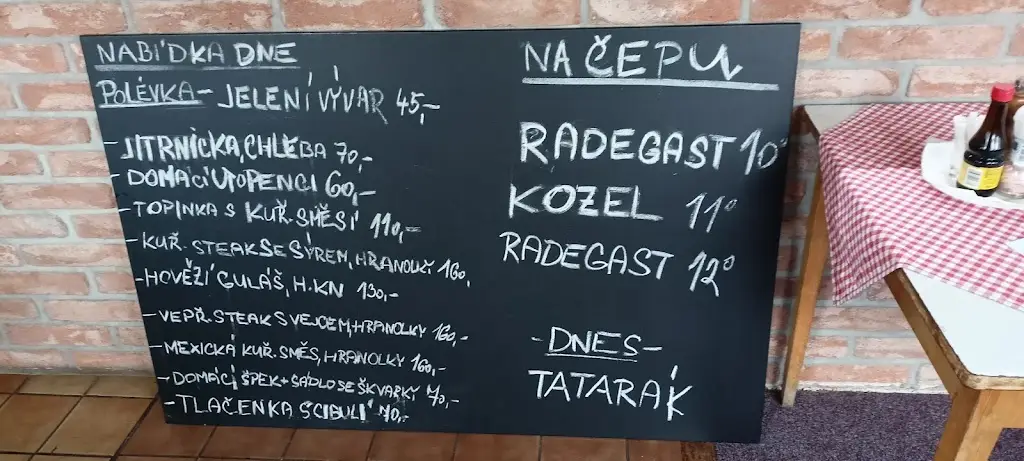 NABÍDKA DNE
POLÉVKA - JELENÍ VÝVAR 45,-
- JITRNICKA, CHLEBA 70,-
- DOMACÍ UTOPENCI 60,-
- TOPINKA S KUŘ. SMĚSÍ 110,-
- KUŘ. STEAK SE SÝREM, HRANOLKY 160,
- HOVĚZÍ GULÁŠ, H.KN 130,-
- VEPŘ. STEAK S VEJCEM, HRANOLKY 160,-
- MEXICKÁ KUŘ. SMĚS, HRANOLKY 160,-
- DOMÁCÍ ŠPEK + SÁDLO SE ŠKVARKY 70,-
- TLAČENKA S CIBULÍ 70,-
NA ČEPU
RADEGAST 10°
KOZEL 11°
RADEGAST 12°
- DNES -
TATARÁK